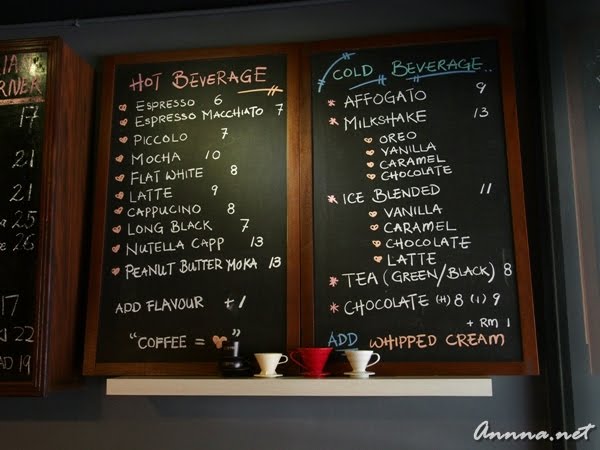 17
21
21
25
26
17
22
19
HOT BEVERAGE
ESPRESSO 6
ESPRESSO MACCHIATO 7
PICCOLO 7
MOCHA 10
FLAT WHITE 8
LATTE 9
CAPPUCINO 8
LONG BLACK 7
NUTELLA CAPP 13
PEANUT BUTTER MOKA 13
ADD FLAVOUR + 1
"COFFEE = "
COLD BEVERAGE..
AFFOGATO 9
MILKSHAKE 13
OREO
VANILLA
CARAMEL
CHOCOLATE
ICE BLENDED 11
VANILLA
CARAMEL
CHOCOLATE
LATTE
TEA (GREEN/BLACK) 8
CHOCOLATE (H) 8 (I) 9
+ RM 1
ADD WHIPPED CREAM
Annna.net